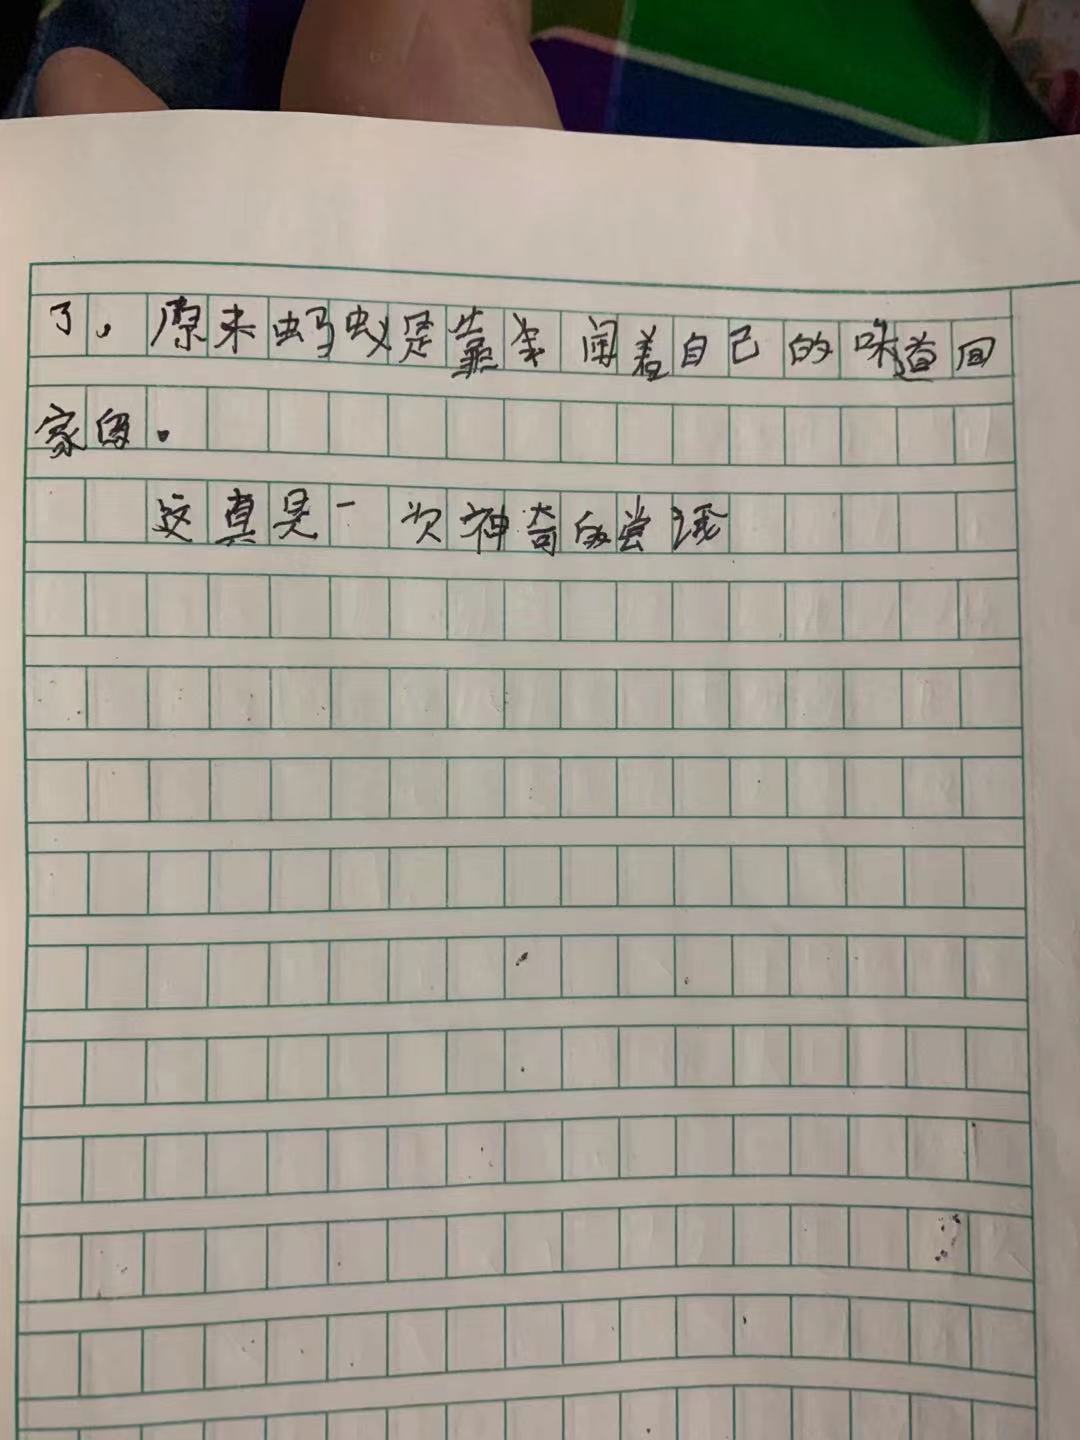 了。原来蚂蚁是靠闻着自己的味道回
家的.
这真是一次神奇的尝试